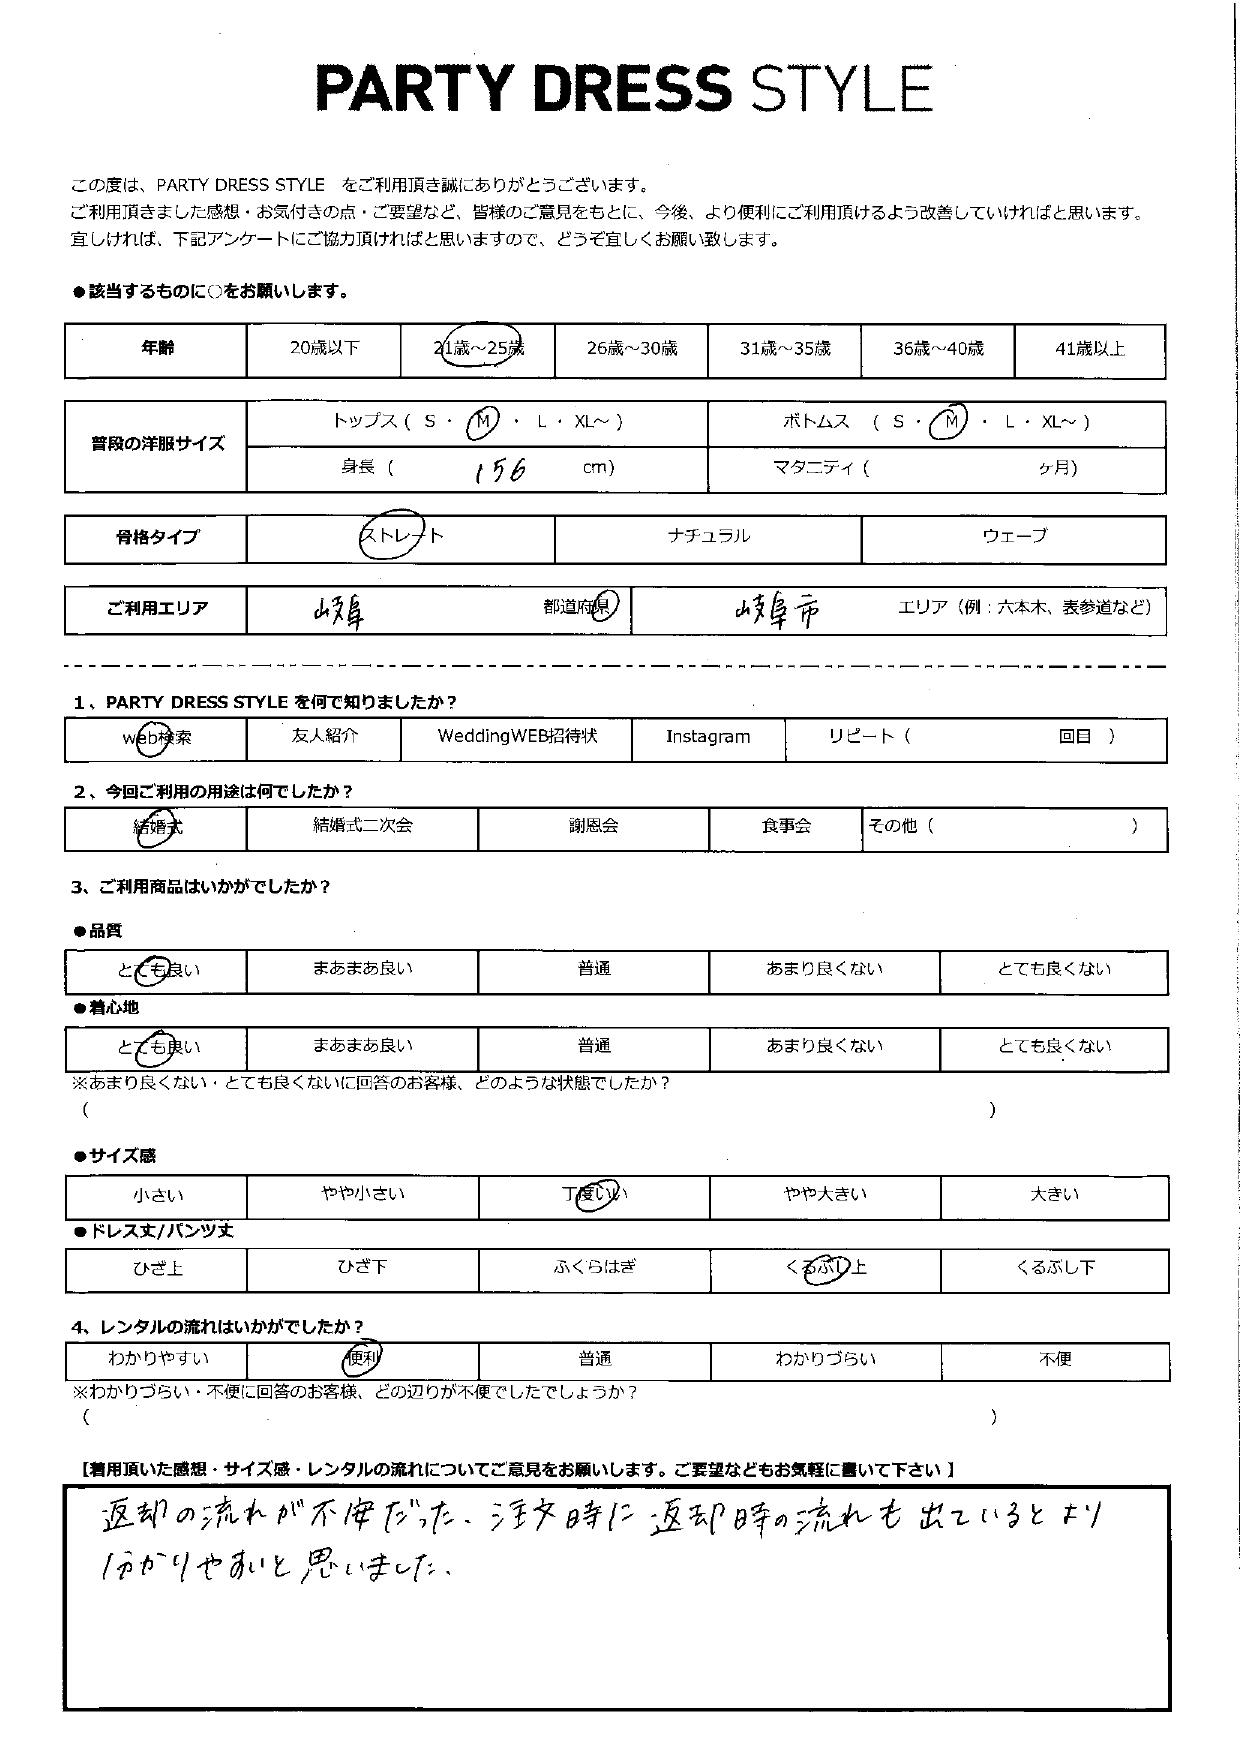 PARTY DRESS STYLE
この度は、PARTY DRESS STYLE をご利用頂き誠にありがとうございます。
ご利用頂きました感想・お気付きの点・ご要望など、皆様のご意見をもとに、今後、より便利にご利用頂けるよう改善していければと思います。
宜しければ、下記アンケートにご協力頂ければと思いますので、どうぞ宜しくお願い致します。
●該当するものに○をお願いします。
年齢 20歳以下 21歳～25歳 26歳～30歳 31歳～35歳 36歳～40歳 41歳以上
普段の洋服サイズ
トップス ( S ・ M ・ L ・ XL～ ) ボトムス ( S ・ M ・ L ・ XL～ )
身長 ( 156 cm) マタニティ ( ヶ月)
骨格タイプ ストレート ナチュラル ウェーブ
ご利用エリア 岐阜 都道府県 岐阜市 エリア（例：六本木、表参道など）
1、PARTY DRESS STYLE を何で知りましたか？
web検索 友人紹介 WeddingWEB招待状 Instagram リピート（ 回目 ）
2、今回ご利用の用途は何でしたか？
結婚式 結婚式二次会 謝恩会 食事会 その他（ ）
3、ご利用商品はいかがでしたか？
●品質
とても良い まあまあ良い 普通 あまり良くない とても良くない
●着心地
とても良い まあまあ良い 普通 あまり良くない とても良くない
※あまり良くない・とても良くないに回答のお客様、どのような状態でしたか？
（ ）
●サイズ感
小さい やや小さい 丁度いい やや大きい 大きい
●ドレス丈/パンツ丈
ひざ上 ひざ下 ふくらはぎ くるぶし上 くるぶし下
4、レンタルの流れはいかがでしたか？
わかりやすい 便利 普通 わかりづらい 不便
※わかりづらい・不便に回答のお客様、どの辺りが不便でしたでしょうか？
（ ）
【着用頂いた感想・サイズ感・レンタルの流れについてご意見をお願いします。ご要望などもお気軽に書いて下さい】
返却の流れが不安だった。注文時に返却時の流れも出ているとより
分かりやすいと思いました。